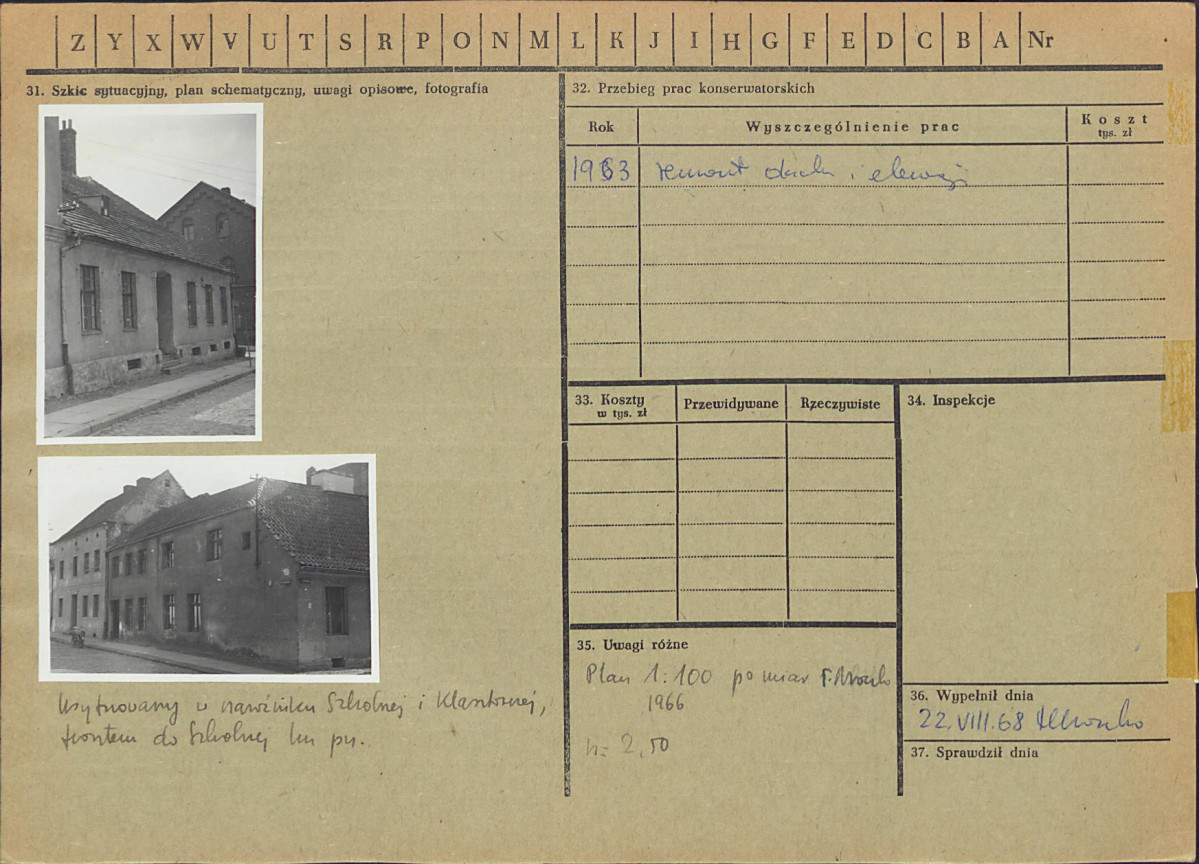 Z Y X W V U T S R P O N M L K J I H G F E D C B A Nr
31. Szkic sytuacyjny, plan schematyczny, uwagi opisowe, fotografia
Usytuowany w narożniku Szkolnej i Klasztornej,
frontem do Szkolnej ku pn.
32. Przebieg prac konserwatorskich
Rok
Wyszczególnienie prac
Koszt
tys. zł
1963 remont dachu i elewacji
33. Koszty
w tys. zł
Przewidywane
Rzeczywiste
34. Inspekcje
35. Uwagi różne
Plan 1:100 pomiar
1966
h= 2,50
36. Wypełnił dnia
22.VIII.68
37. Sprawdził dnia